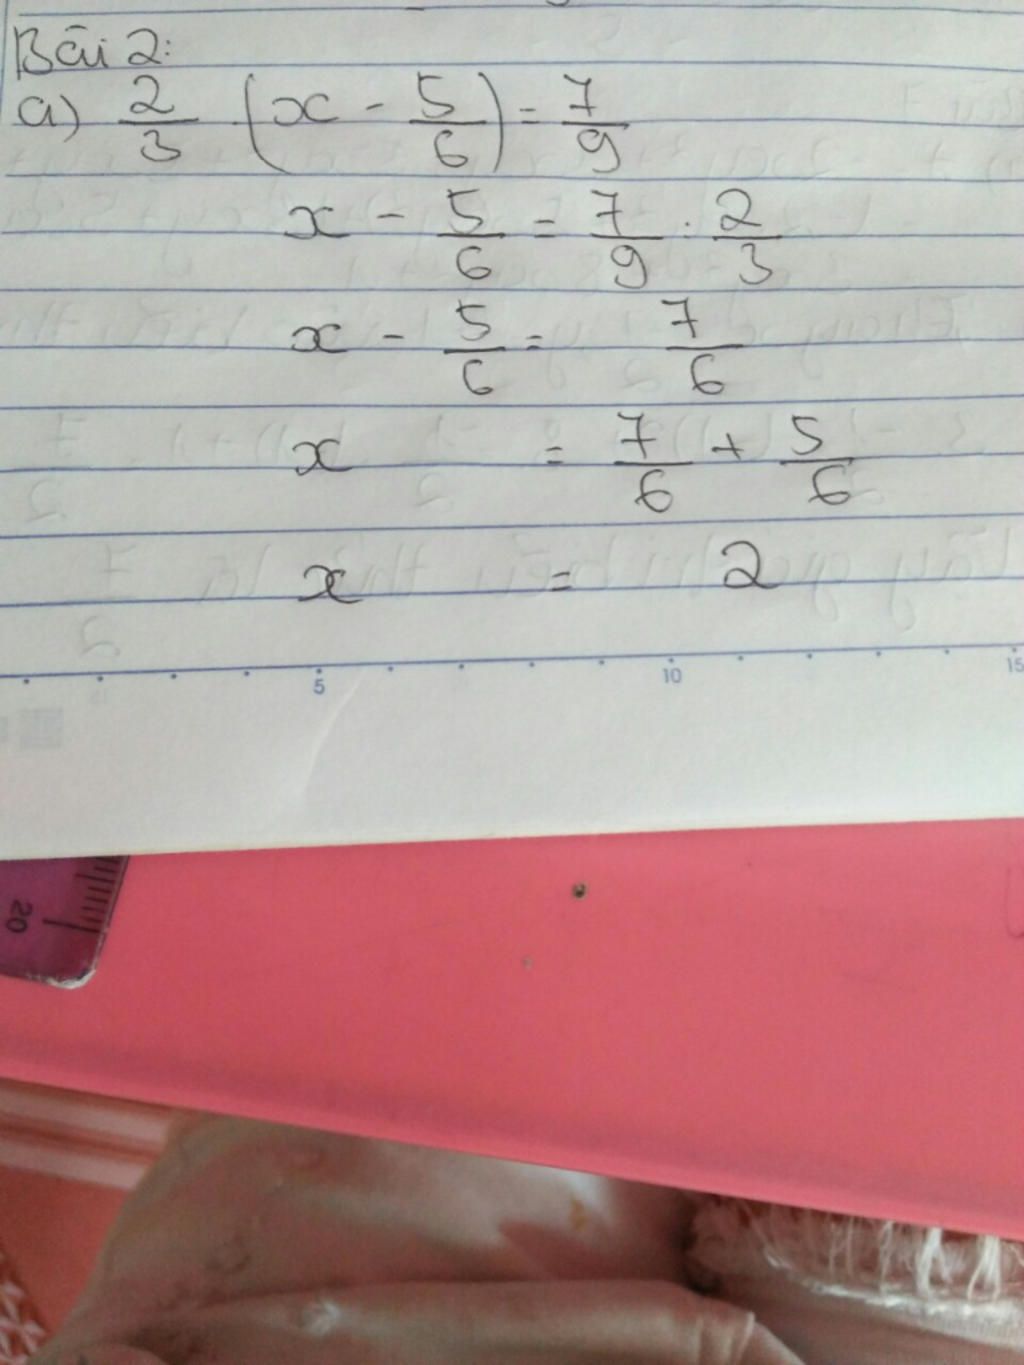 Bài 2:
a) 2/3 . (x - 5/6) = 7/9
x - 5/6 = 7/9 : 2/3
x - 5/6 = 7/6
x = 7/6 + 5/6
x = 2
5 10 15
20